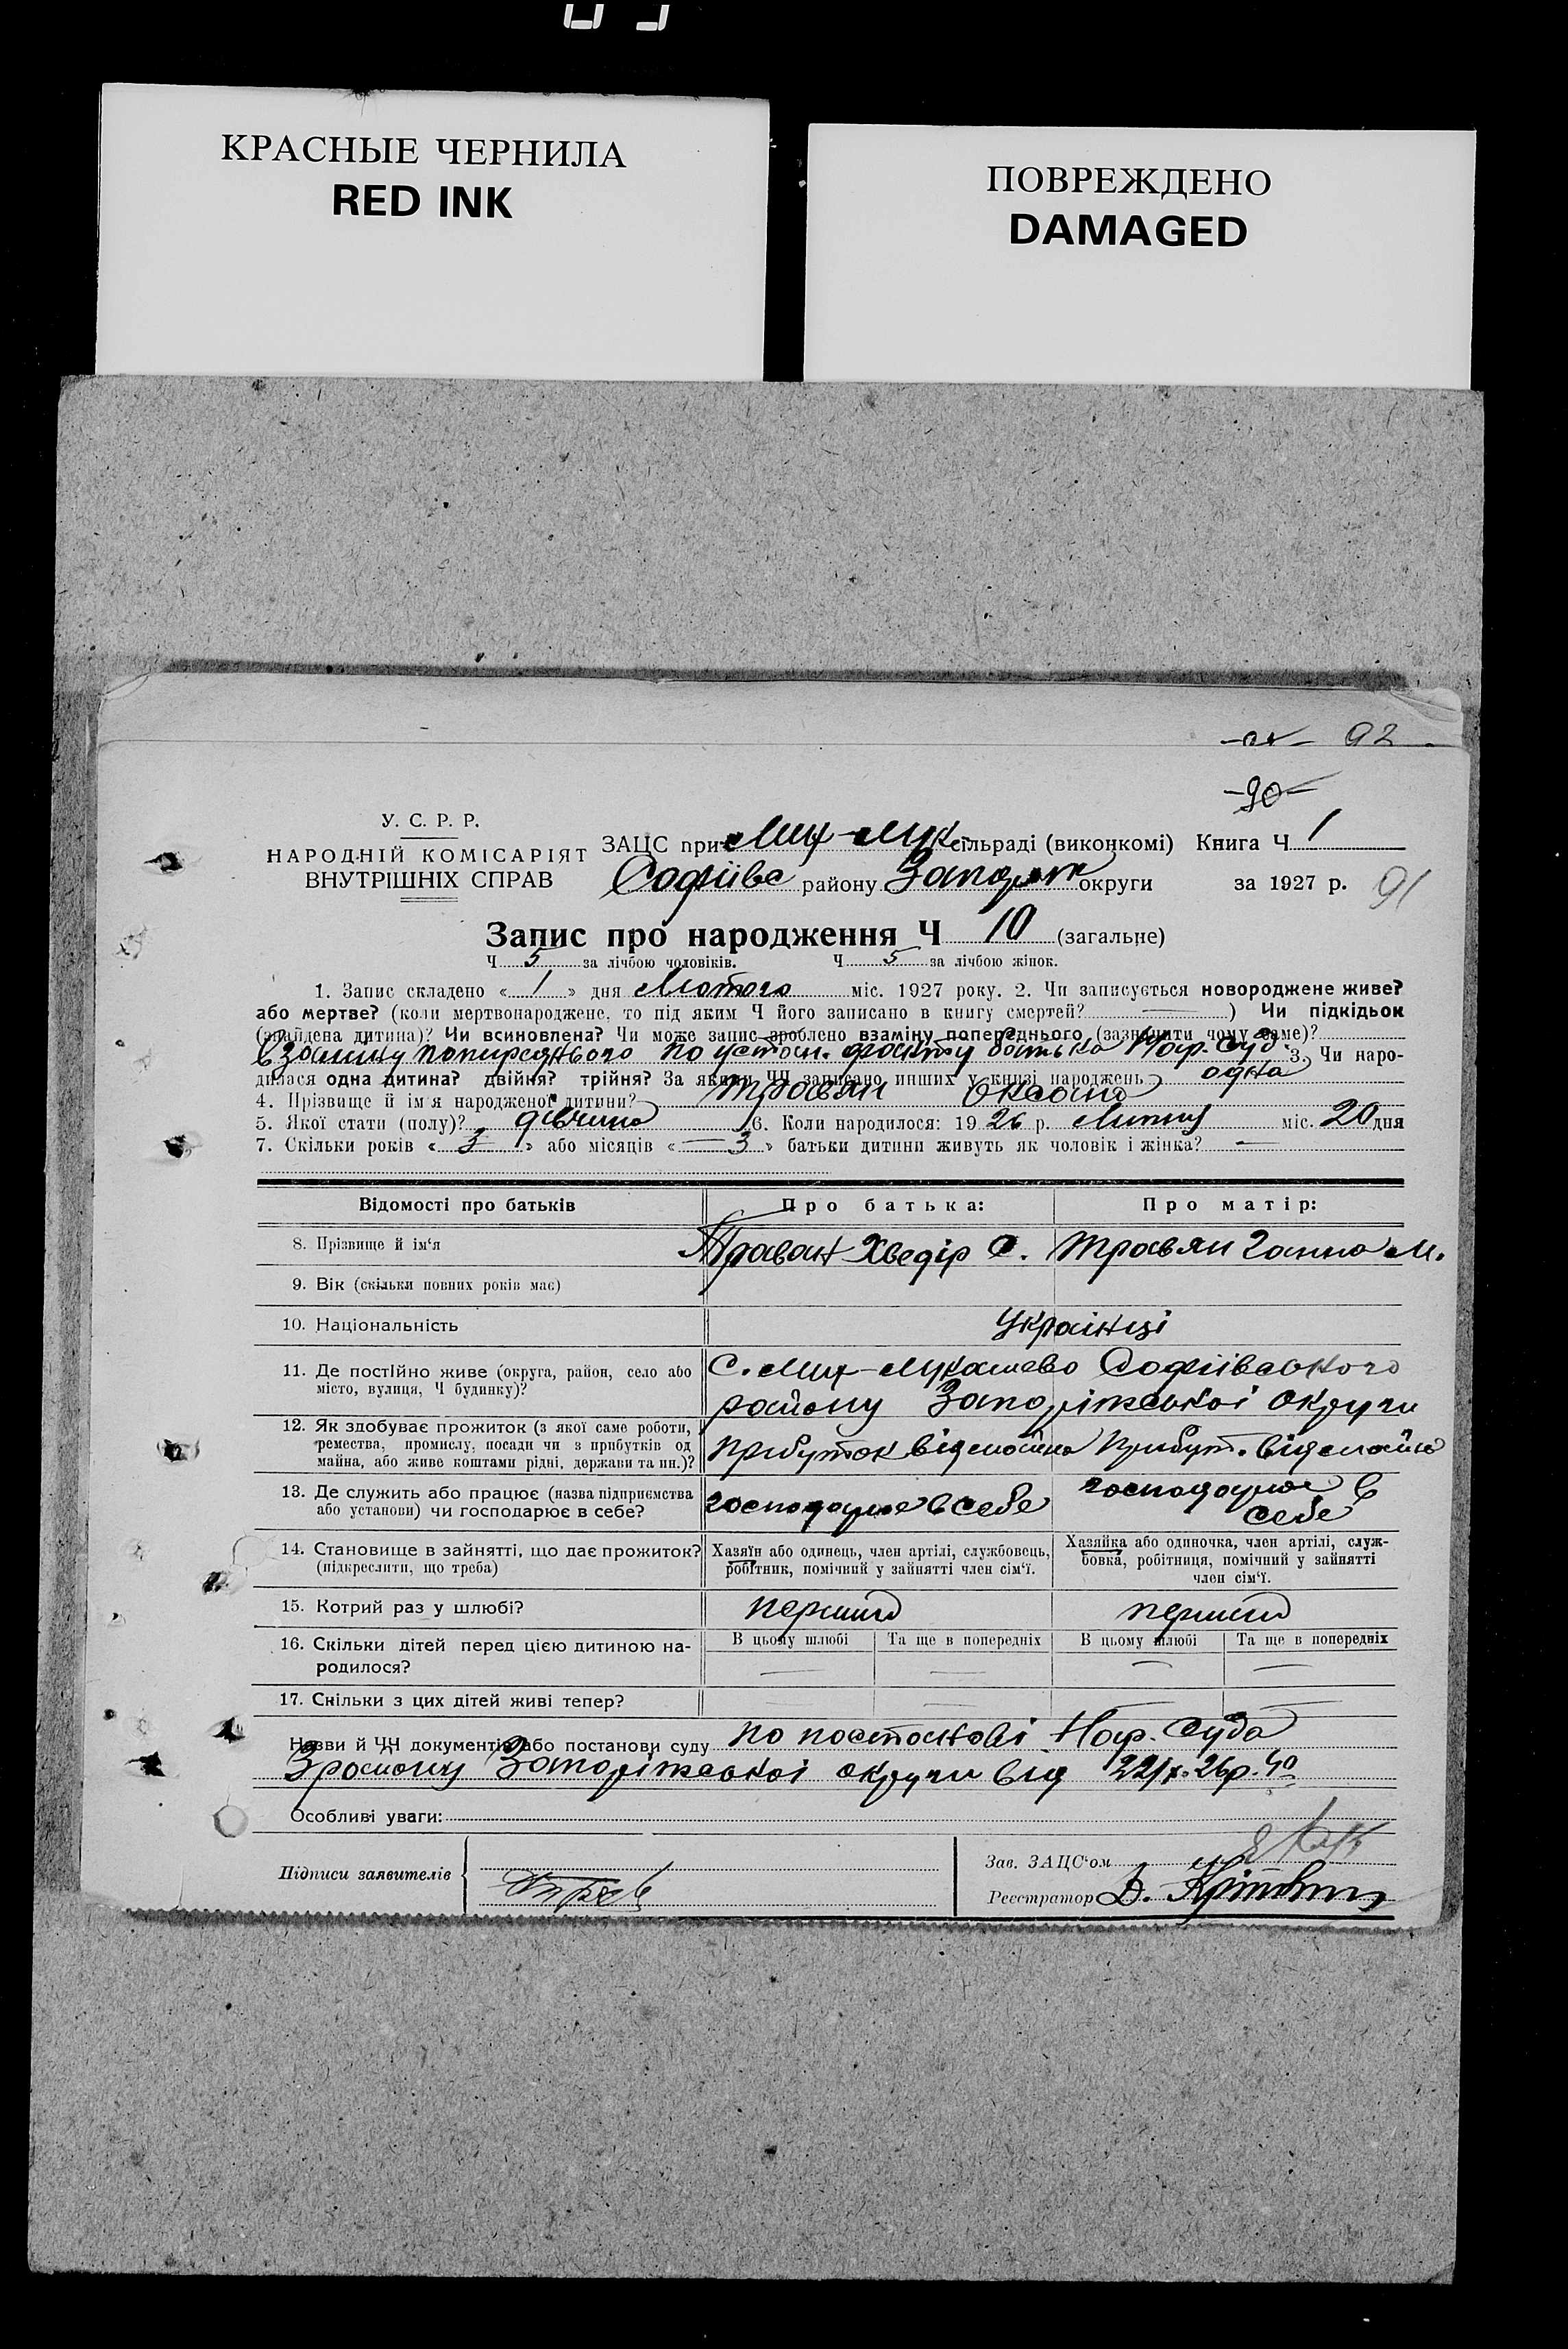 КРАСНЫЕ ЧЕРНИЛА
RED INK
ПОВРЕЖДЕНО
DAMAGED
92
-90-
У. С. Р. Р.
НАРОДНІЙ КОМІСАРІЯТ
ВНУТРІШНІХ СПРАВ
ЗАЦС при Мих-Лук сільраді (виконкомі) Книга Ч 1
Софіївс району Запоріж округи за 1927 р. 91
Запис про народження Ч 10 (загальне)
Ч 5 за лічбою чоловіків. Ч 5 за лічбою жінок.
1. Запис складено « 1 » дня Лютого міс. 1927 року. 2. Чи записується новороджене живе?
або мертве? (коли мертвонароджене, то під яким Ч його записано в книгу смертей? — ) Чи підкідьок
(знайдена дитина)? Чи всиновлена? Чи може запис зроблено взаміну попереднього (зазначити чому саме)?
Взаміну попиреднього по устан. факту батька Нар. Суд. 3. Чи наро-
дилася одна дитина? двійня? трійня? За якими ЧЧ записано инших у книзі народжень одна
4. Прізвище й ім'я народженої дитини? Травян Оксана
5. Якої стати (полу)? дівчина 6. Коли народилося: 1926 р. Липня міс. 20 дня
7. Скільки років « 3 » або місяців « — 3 » батьки дитини живуть як чоловік і жінка? —
Відомості про батьків Про батька: Про матір:
8. Прізвище й ім'я Траван Хведір С. Травян Ганна М.
9. Вік (скільки повних років має)
10. Національність Українці
11. Де постійно живе (округа, район, село або
місто, вулиця, Ч будинку)?
с. Мих-Лукашево Софіївського
району Запоріжської округи
12. Як здобуває прожиток (з якої саме роботи,
ремества, промислу, посади чи з прибутків од
майна, або живе коштами рідні, держави та ин.)?
Прибуток від майна Прибут. від майна
13. Де служить або працює (назва підприємства
або установи) чи господарює в себе?
господарює в себе господарює в
себе
14. Становище в зайнятті, що дає прожиток?
(підкреслити, що треба)
Хазяїн або одинець, член артілі, службовець,
робітник, помічний у зайнятті член сім'ї.
Хазяйка або одиночка, член артілі, служ-
бовка, робітниця, помічний у зайнятті
член сім'ї.
15. Котрий раз у шлюбі? перший перший
16. Скільки дітей перед цією дитиною на-
родилося?
В цьому шлюбі Та ще в попередніх В цьому шлюбі Та ще в попередніх
— — — —
17. Скільки з цих дітей живі тепер?
Назви й ЧЧ документів або постанови суду по постанові Нар. Суда
Зрайону Запоріжської округи від 22/X-26р.
Особливі уваги:
Підписи заявителів
Зав. ЗАЦС'ом
Реєстратор